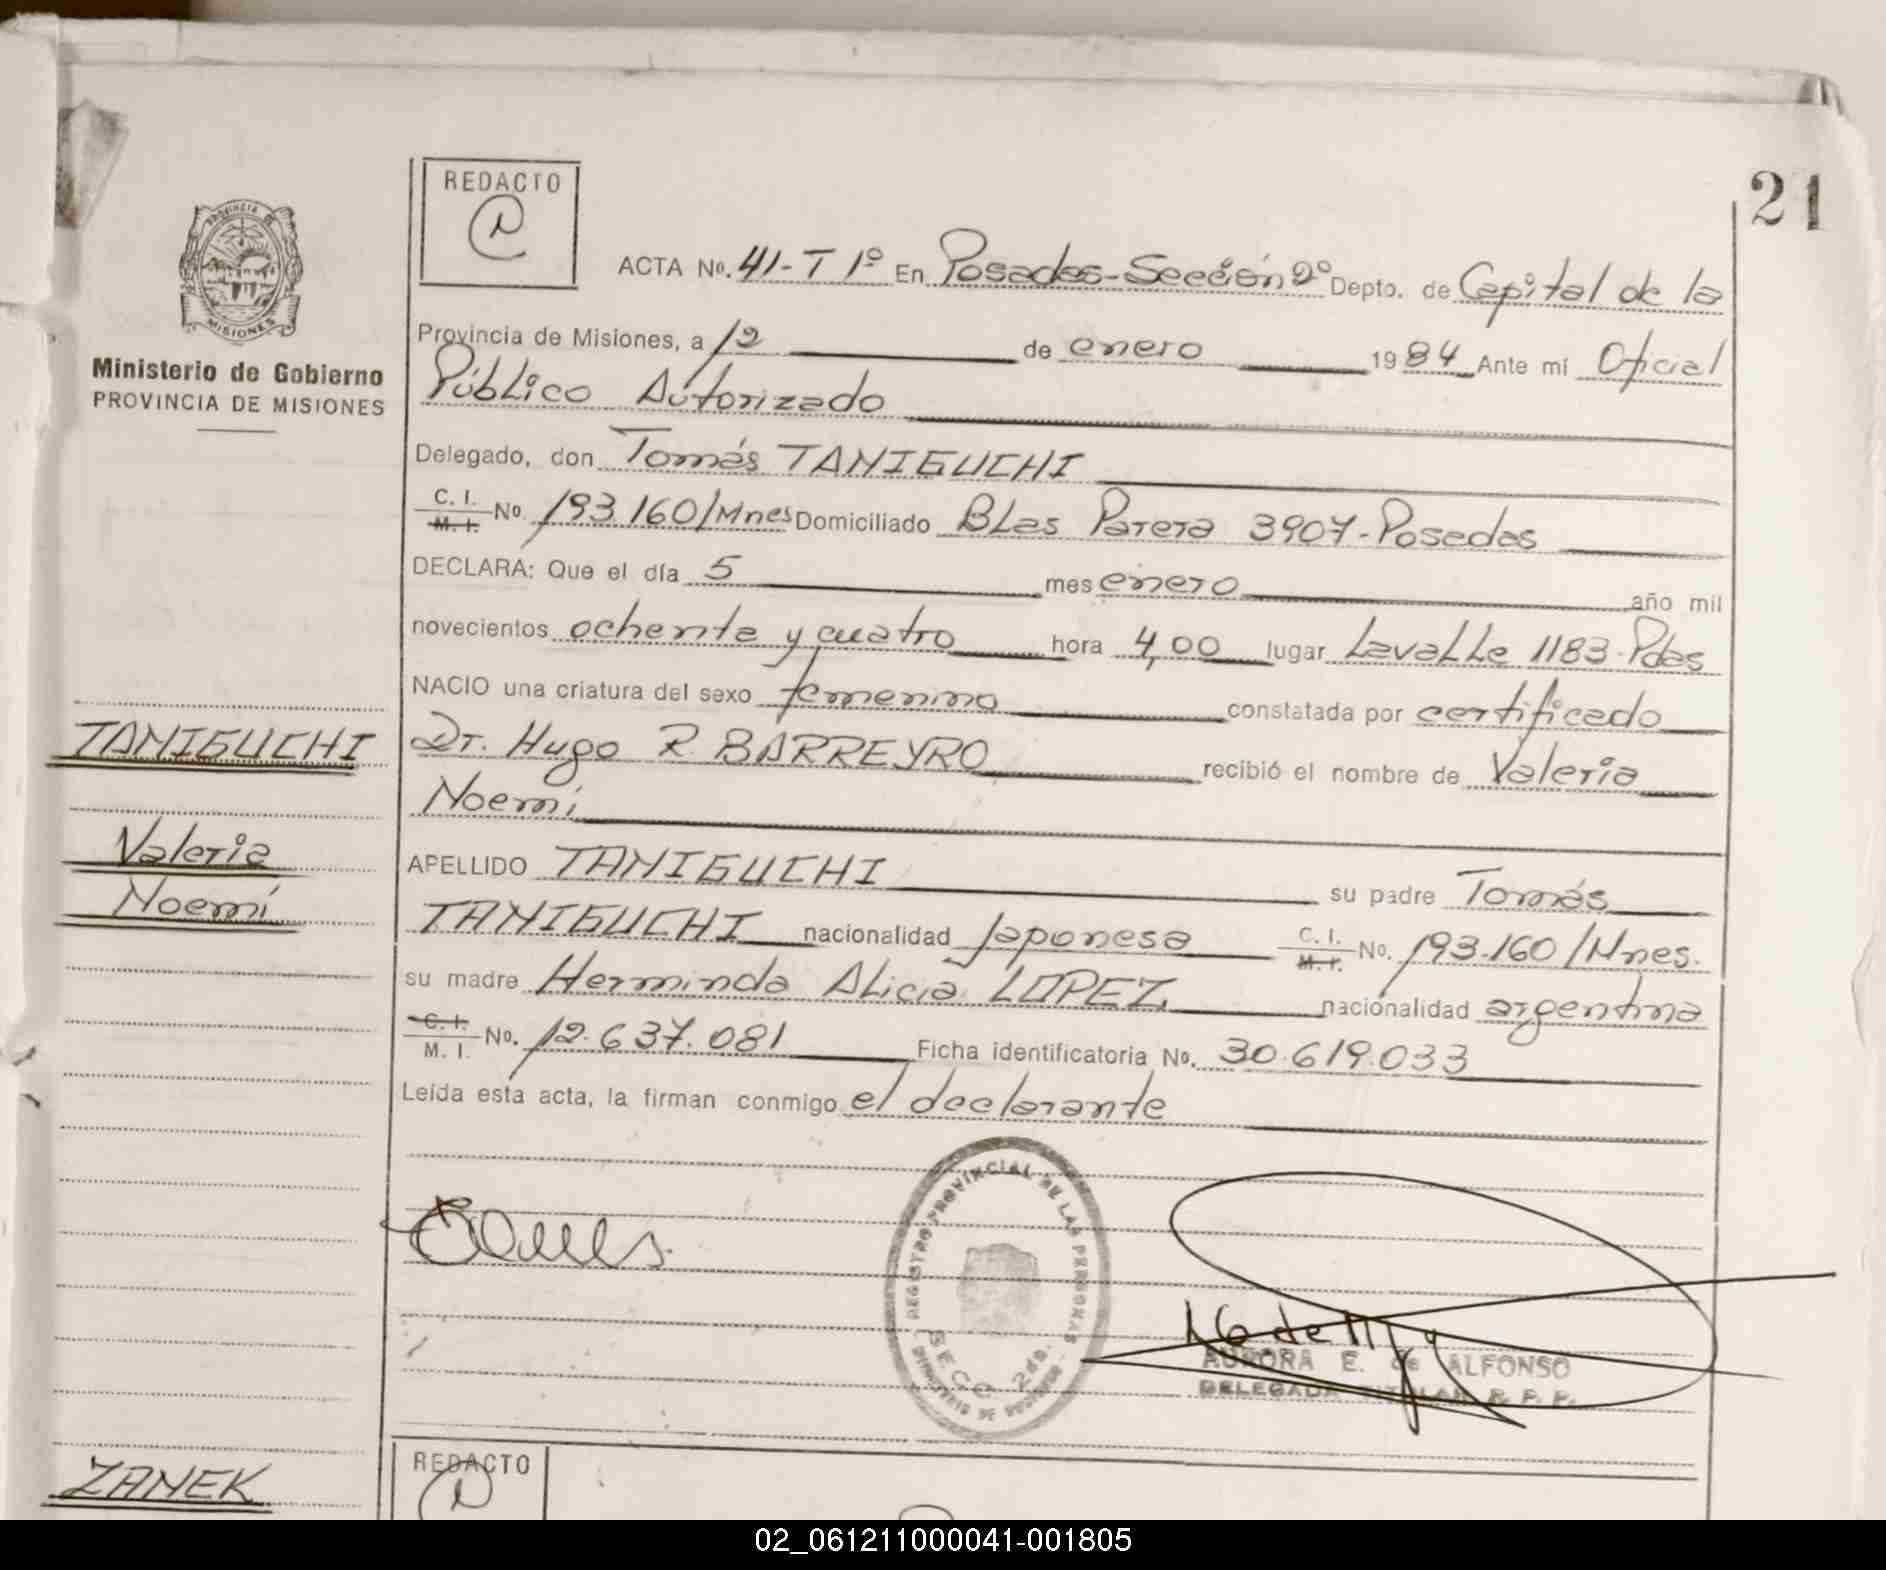 21
REDACTO
PROVINCIA DE
MISIONES
Ministerio de Gobierno
PROVINCIA DE MISIONES
ACTA No. 41-T 1º En Posadas-Sección 2º Depto. de Capital de la
Provincia de Misiones, a 12 de enero 1984 Ante mí Oficial
Público Autorizado
Delegado, don Tomás TANIGUCHI
C. I. M. I. No. 193.160/Mnes Domiciliado Blas Parera 3907-Posadas
DECLARA: Que el día 5 mes enero año mil
novecientos ochenta y cuatro hora 4,00 lugar Lavalle 1183-Pdas
NACIO una criatura del sexo femenino constatada por certificado
TANIGUCHI
Dr. Hugo R. BARREYRO recibió el nombre de Valeria
Noemí
Valeria
Noemí
APELLIDO TANIGUCHI su padre Tomás
TANIGUCHI nacionalidad Japonesa C. I. M. I. No. 193.160/Mnes.
su madre Herminda Alicia LOPEZ nacionalidad argentina
C. I. M. I. No. 12.637.081 Ficha identificatoria No. 30.619.033
Leída esta acta, la firman conmigo el declarante
REGISTRO PROVINCIAL DE LAS PERSONAS
SECC. 2da.
MINISTERIO DE GOBIERNO
AURORA E. de ALFONSO
DELEGADA TITULAR R. P. P.
ZANEK
REDACTO
02_061211000041-001805